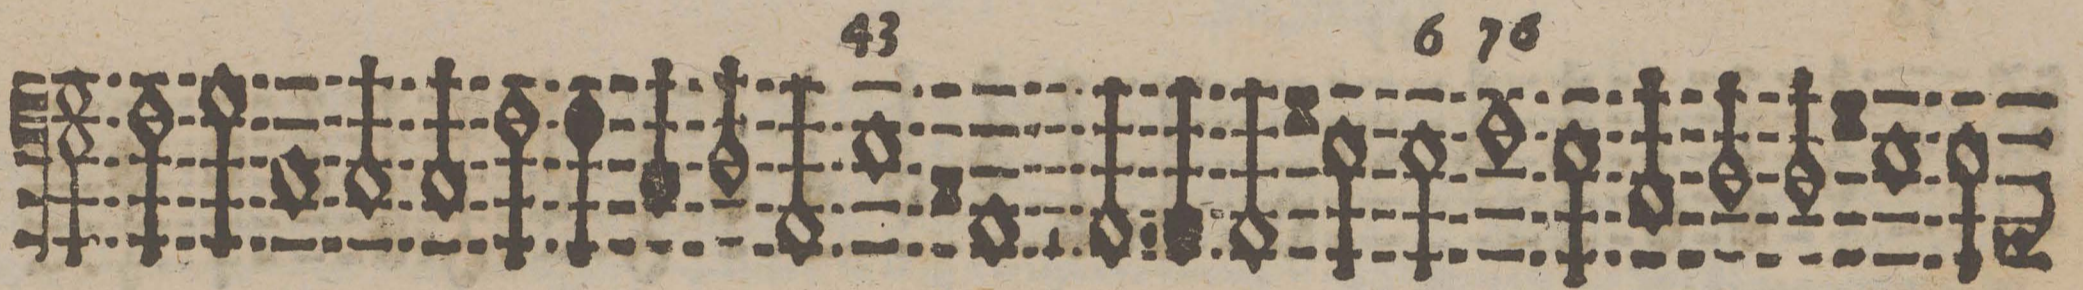 43 6 76